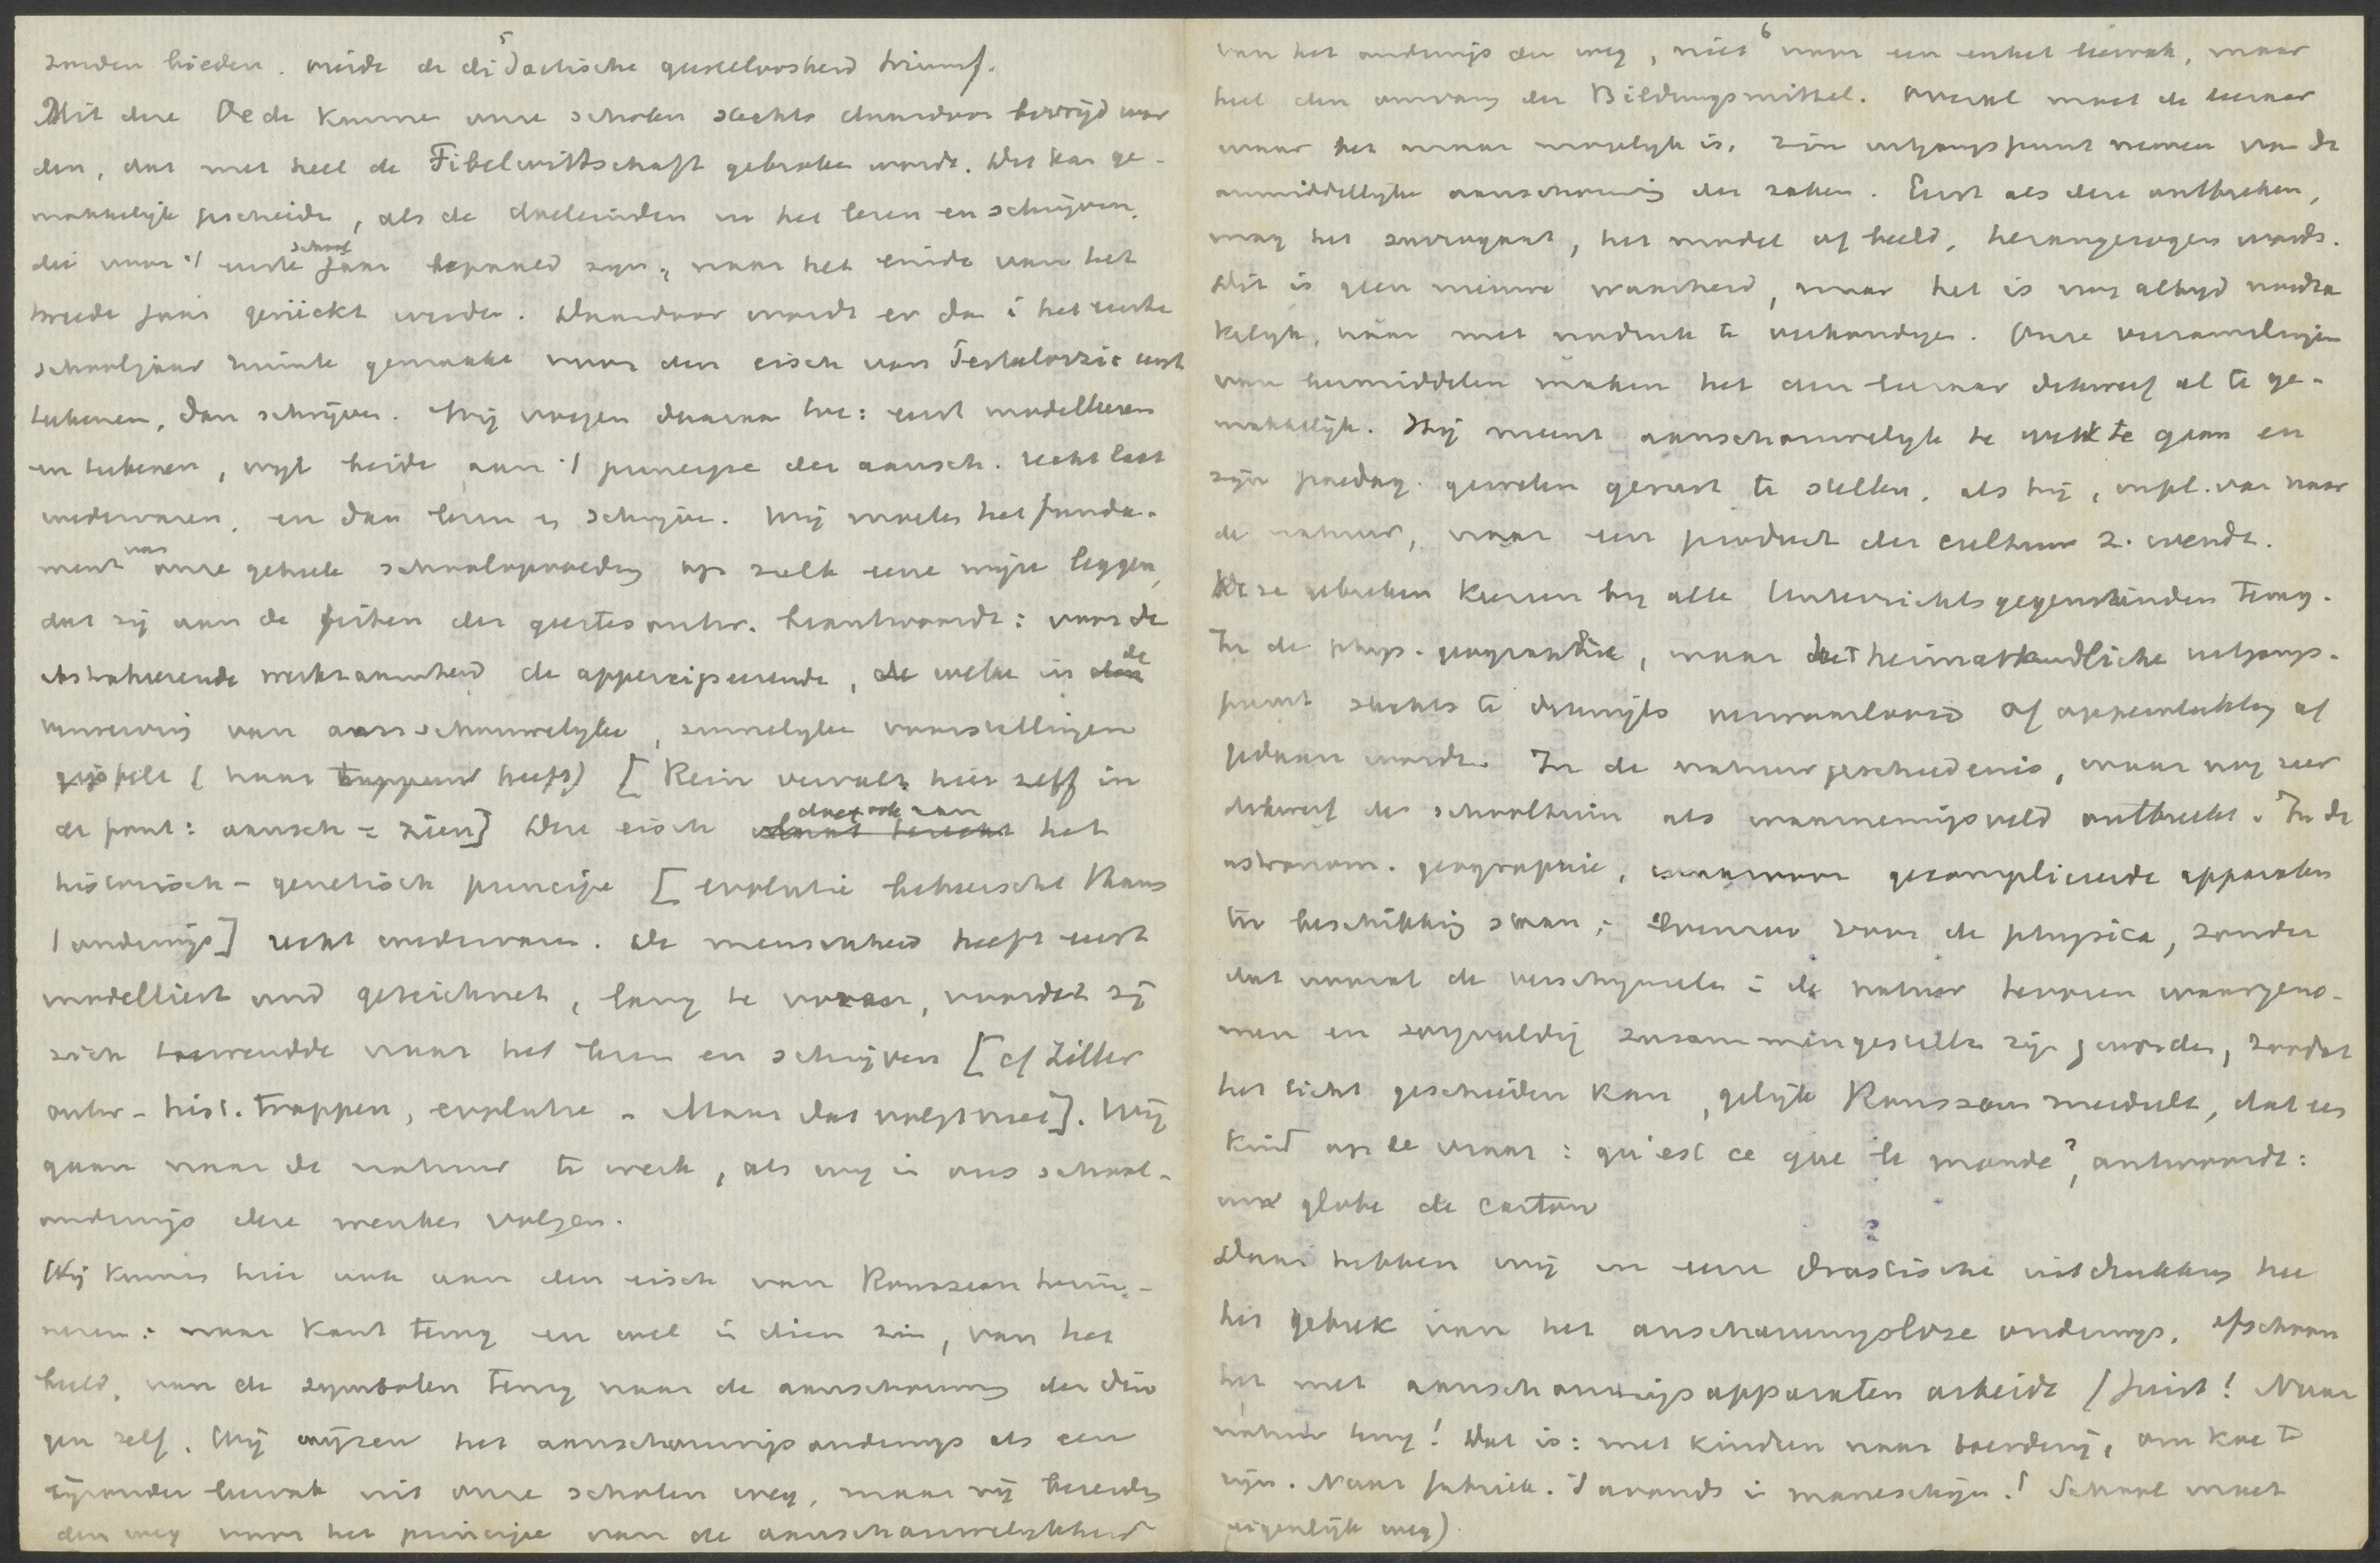 5
zonden bieden. vierde de didactische gedachteloosheid triumf.
Uit deze Oede kunnen onze scholen slechts daardoor bevrijd wor
den, dat met heel de Fibelwirtschaft gebroken wordt. Dit kan ge-
makkelijk geschieden, als de doeleinden in het lezen en schrijven,
die voor 't eerste school jaar bepaald zijn, naar het einde van het
tweede jaar gerückt werden. Daardoor wordt er dan i het eerste
schooljaar ruimte gemaakt voor den eisch van Pestalozzi: eerst
tekenen, dan schrijven. Wij voegen daaraan toe: eerst modelleren
en tekenen, wijl beide aan 't principe der aansch. recht laat
wedervaren, en dan lezen en schrijven. Wij moeten het funda-
ment van onze geheele schoolopvoeding op zulk eene wijze leggen,
dat zij aan de feiten der geestesontw. beantwoordt: voor de
abstraherende werkzaamheid de appercipieerende, welke in de
verwerving van aanschouwelijke, zinnelijke voorstellingen
(haar heeft) [Rein vervalt hier zelf in
de fout: aansch = zien] Deze eisch doet ook aan het
historisch-genetisch principe [evolutie beheerscht
onderwijs] recht wedervaren. De menschheid heeft eerst
modelliert und gezeichnet, lang te voren, voordat zij
zich toewendde naar het lezen en schrijven [cf Ziller
ontw-hist. trappen, evolutie - Maar dat volgt niet]. Wij
gaan naar de natuur te werk, als wij in ons school-
onderwijs deze wenken volgen.
Wij kunnen hier ook aan den eisch van Rousseau herin-
neren: naar Kant terug en wel in dien zin, van het
beeld, van de symbolen terug naar de aanschouwing der din
gen zelf. Wij wijzen het aanschouwingsonderwijs als een
bijzonder leervak uit onze scholen weg, maar wij bereiden
den weg voor het principe van de aanschouwelijkheid
6
van het onderwijs den weg, niet voor een enkel leervak, maar
heel den omvang der Bildungsmittel. Overal moet de leeraar
waar het maar mogelijk is, zijn uitgangspunt nemen van de
onmiddellijke aanschouwing der zaken. Eerst als deze ontbreken,
mag het surrogaat, het model of beeld, herangezogen worde.
Dit is geen nieuwe waarheid, maar het is nog altijd noodza
kelijk, haar met nadruk te verkondigen. Onze verzamelingen
van leermiddelen maken het den leeraar dikwerf al te ge-
makkelijk. Hij meent aanschouwelijk te werk te gaan en
zijn paedag. geweten gerust te stellen, als hij, in pl. van naar
de natuur, naar een product der cultuur z. wendt.
Deze gebreken keeren bij alle Unterrichtsgegenständen terug.
In de phys. geographie, waar het heimatkundliche uitgangs-
punt slechts te dikwijls verwaarloosd of oppervlakkig af
gedaan wordt. In de natuurgeschiedenis, waar nog zeer
dikwerf de schooltuin als waarnemingsveld ontbreekt. In de
astronom. geographie, waarvoor gecompliceerde apparaten
ter beschikking staan; evenzoo voor de physica, zonder
dat vooraf de verschijnselen i de natuur tevoren waargeno-
men en zorgvuldig zusammengestellt zijn geworden, zoodat
het licht geschieden kan, gelijk Rousseau meedeelt, dat een
kind op de vraag: qu'est ce que le monde?, antwoordt:
une globe de carton
Daar hebben wij in eene drastische uitdrukking hee
het gebrek van het anschauungslose onderwijs, ofschoon
het met aanschouwingsapparaten arbeidt (Juist! Naar
natuur terug! Dat is: met kindren naar boerderij, om koe te
zien. Naar fabriek. 's avonds i maneschijn.! School moet
eigenlijk weg)